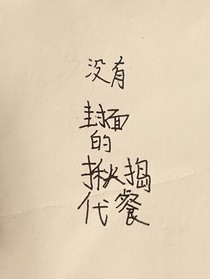 没有
封面
的
揪捣
代餐